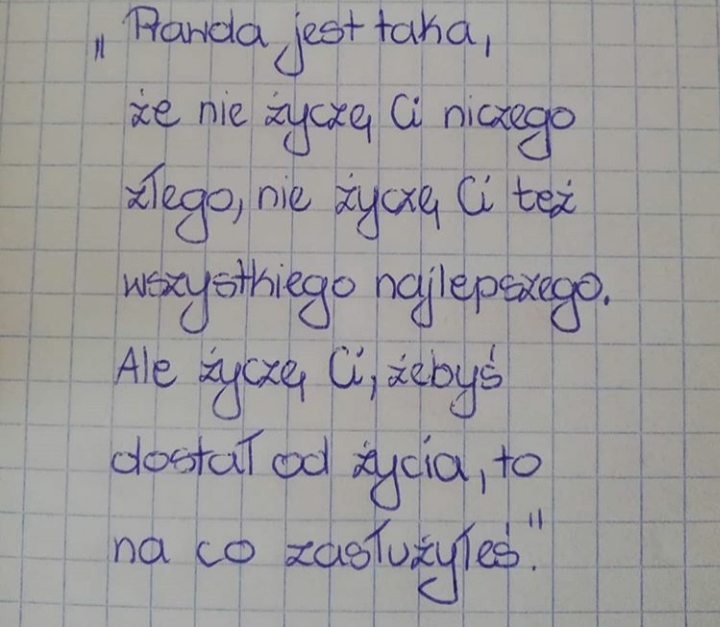 „Prawda jest taka,
że nie życzę Ci niczego
złego, nie życzę Ci też
wszystkiego najlepszego.
Ale życzę Ci, żebyś
dostał od życia, to
na co zasłużyłeś."